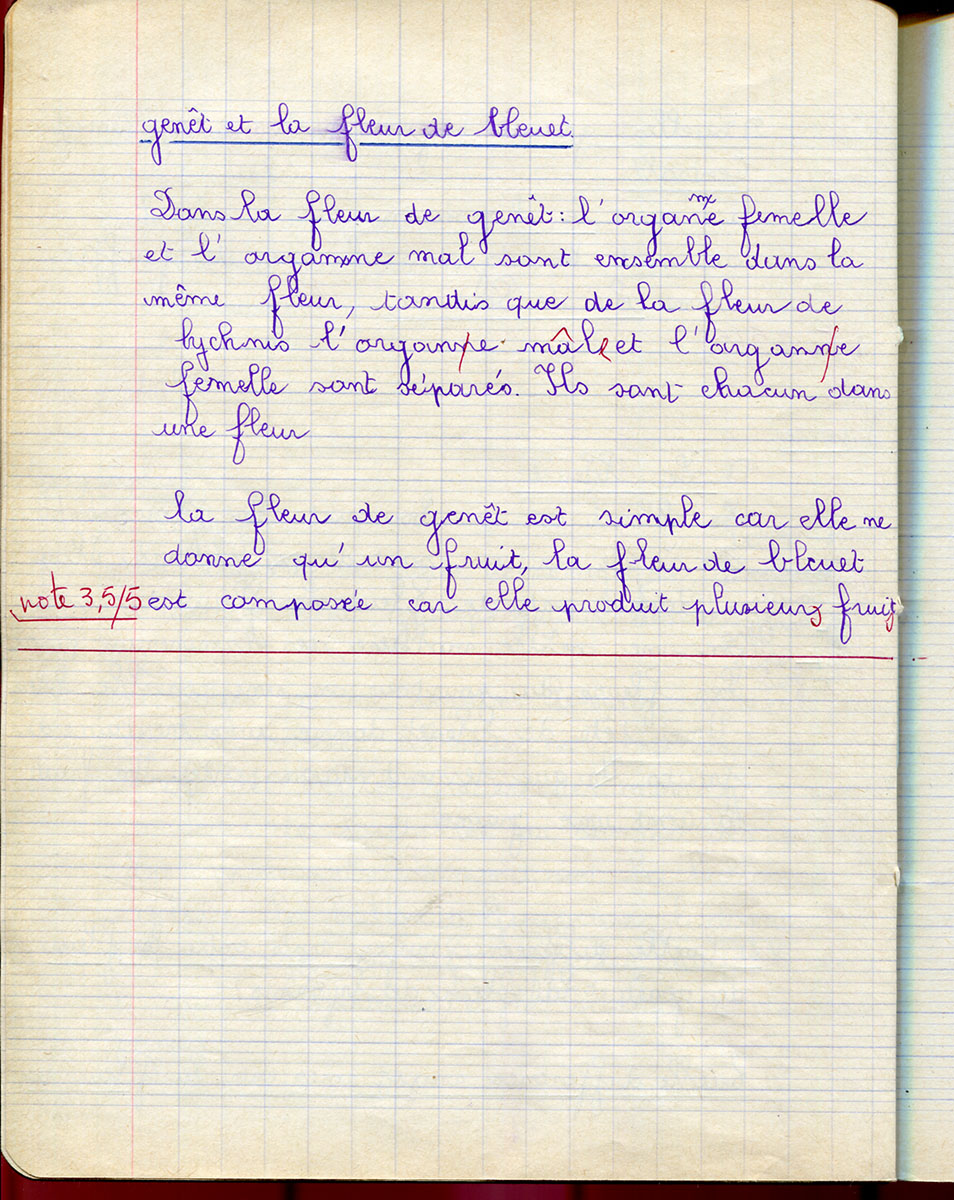 genêt et la fleur de bleuet.
Dans la fleur de genêt : l'organne femelle
et l'organnne mal sont ensemble dans la
même fleur, tandis que de la fleur de
lychnis l'organne mâle et l'organne
femelle sont séparés. Ils sont chacun dans
une fleur
la fleur de genêt est simple car elle ne
donne qu'un fruit, la fleur de bleuet
note 3,5/5 est composée car elle produit plusieurs fruits